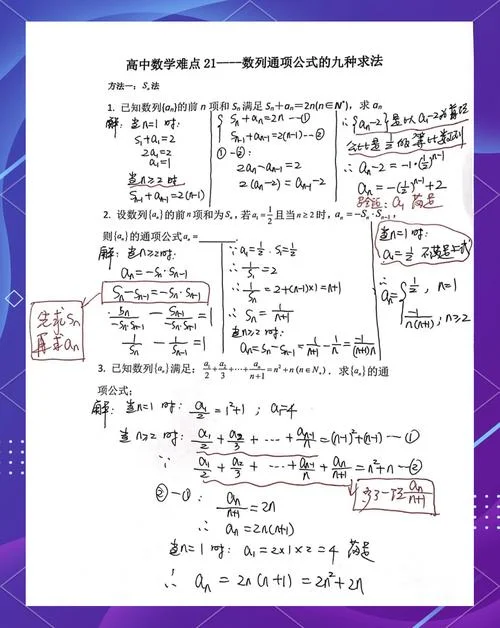 高中数学难点 21----数列通项公式的九种求法
方法一：Sₙ法
1. 已知数列{aₙ}的前 n 项和 Sₙ 满足 Sₙ+aₙ=2n(n∈N*)，求 aₙ
解：当n=1 时：
S₁+a₁=2
2a₁=2
a₁=1
当n≥2 时
Sₙ₋₁+aₙ₋₁=2(n-1)
{Sₙ+aₙ=2n --①
Sₙ₋₁+aₙ₋₁=2(n-1) --②
①-②:
2aₙ-aₙ₋₁=2
2(aₙ-2)=aₙ₋₁-2
∴{aₙ-2}是以a₁-2为首项
公比是½的等比数列
∴aₙ-2=-1·(½)ⁿ⁻¹
aₙ=-(½)ⁿ⁻¹+2
a₁ 满足
2. 设数列{aₙ}的前n项和为Sₙ，若a₁=1/2且当n≥2时，aₙ=-Sₙ·Sₙ₋₁，
则{aₙ}的通项公式aₙ=______.
解：当n≥2时：
aₙ=-Sₙ·Sₙ₋₁
Sₙ-Sₙ₋₁=-Sₙ·Sₙ₋₁
Sₙ/(-Sₙ·Sₙ₋₁) - Sₙ₋₁/(-Sₙ·Sₙ₋₁)=1
1/Sₙ - 1/Sₙ₋₁=1
先求Sₙ
再求aₙ
∵a₁=½. S₁=½
∴1/S₁=2
∴1/Sₙ=2+(n-1)×1=n+1
∴Sₙ=1/(n+1)
当n≥2 时
aₙ=Sₙ-Sₙ₋₁=1/(n+1)-1/n=-1/((n+1)n)
当n=1 时:
a₁=½ 不满足上式
∴aₙ={½, n=1
-1/(n(n+1)); n≥2
3. 已知数列{aₙ}满足：a₁/2+a₂/3+⋯+aₙ/(n+1)=n²+n (n∈N₊)．求{aₙ}的通
项公式；
解：当n=1 时: a₁/2=1²+1 ; a₁=4
当n≥2 时: a₁/2+a₂/3+···+aₙ₋₁/n=(n-1)²+(n-1) --①
∵ a₁/2+a₂/3+···+aₙ₋₁/n+aₙ/(n+1)=n²+n --②
②-①: aₙ/(n+1)=2n
∴ aₙ=2n(n+1)
当n=1 时: a₁=2×1×2=4 满足
∴ aₙ=2n(n+1)=2n²+2n